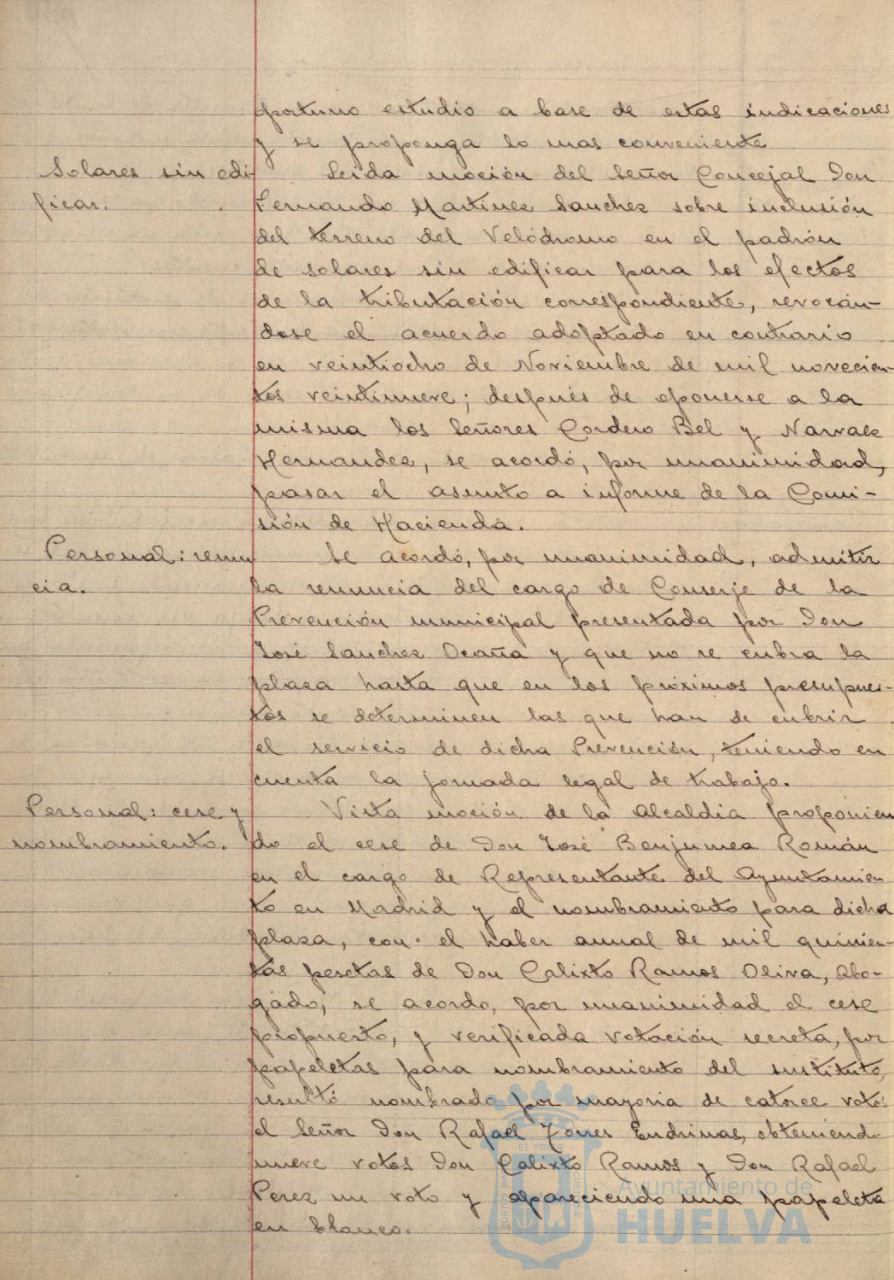 oportuno estudio a base de estas indicaciones
y se proponga lo mas conveniente
Solares sin edi-
ficar.
Leida moción del Señor Concejal Don
Fernando Martinez Sanchez sobre inclusión
del terreno del Velódromo en el padrón
de solares sin edificar para los efectos
de la tributación correspondiente, revocán-
dose el acuerdo adoptado en contrario
en veintiocho de Noviembre de mil novecien-
tos veintinueve; después de oponerse a la
misma los Señores Cordero Bel y Narvaez
Hernandez, se acordó, por unanimidad,
pasar el asunto a informe de la Comi-
sión de Hacienda.
Personal: renun
cia.
Se acordó, por unanimidad, admitir
la renuncia del cargo de Conserje de la
Prevención municipal presentada por Don
José Sanchez Ocaña y que no se cubra la
plaza hasta que en los próximos presupues-
tos se determinen las que han de cubrir
el servicio de dicha Prevención, teniendo en
cuenta la jornada legal de trabajo.
Personal: cese y
nombramiento.
Vista moción de la Alcaldia proponien
do el cese de Don José Benjumea Román
en el cargo de Representante del Ayuntamien
to en Madrid y el nombramiento para dicha
plaza, con el haber anual de mil quinien-
tas pesetas de Don Calixto Ramos Oliva, Abo-
gado; se acordo, por unanimidad el cese
propuesto, y verificada votación secreta, por
papeletas para nombramiento del sustituto,
resultó nombrado por mayoria de catorce votos
el Señor Don Rafael Torres Endrinas, obteniendo
nueve votos Don Calixto Ramos y Don Rafael
Perez un voto y apareciendo una papeleta
en blanco.
Ayuntamiento de
HUELVA